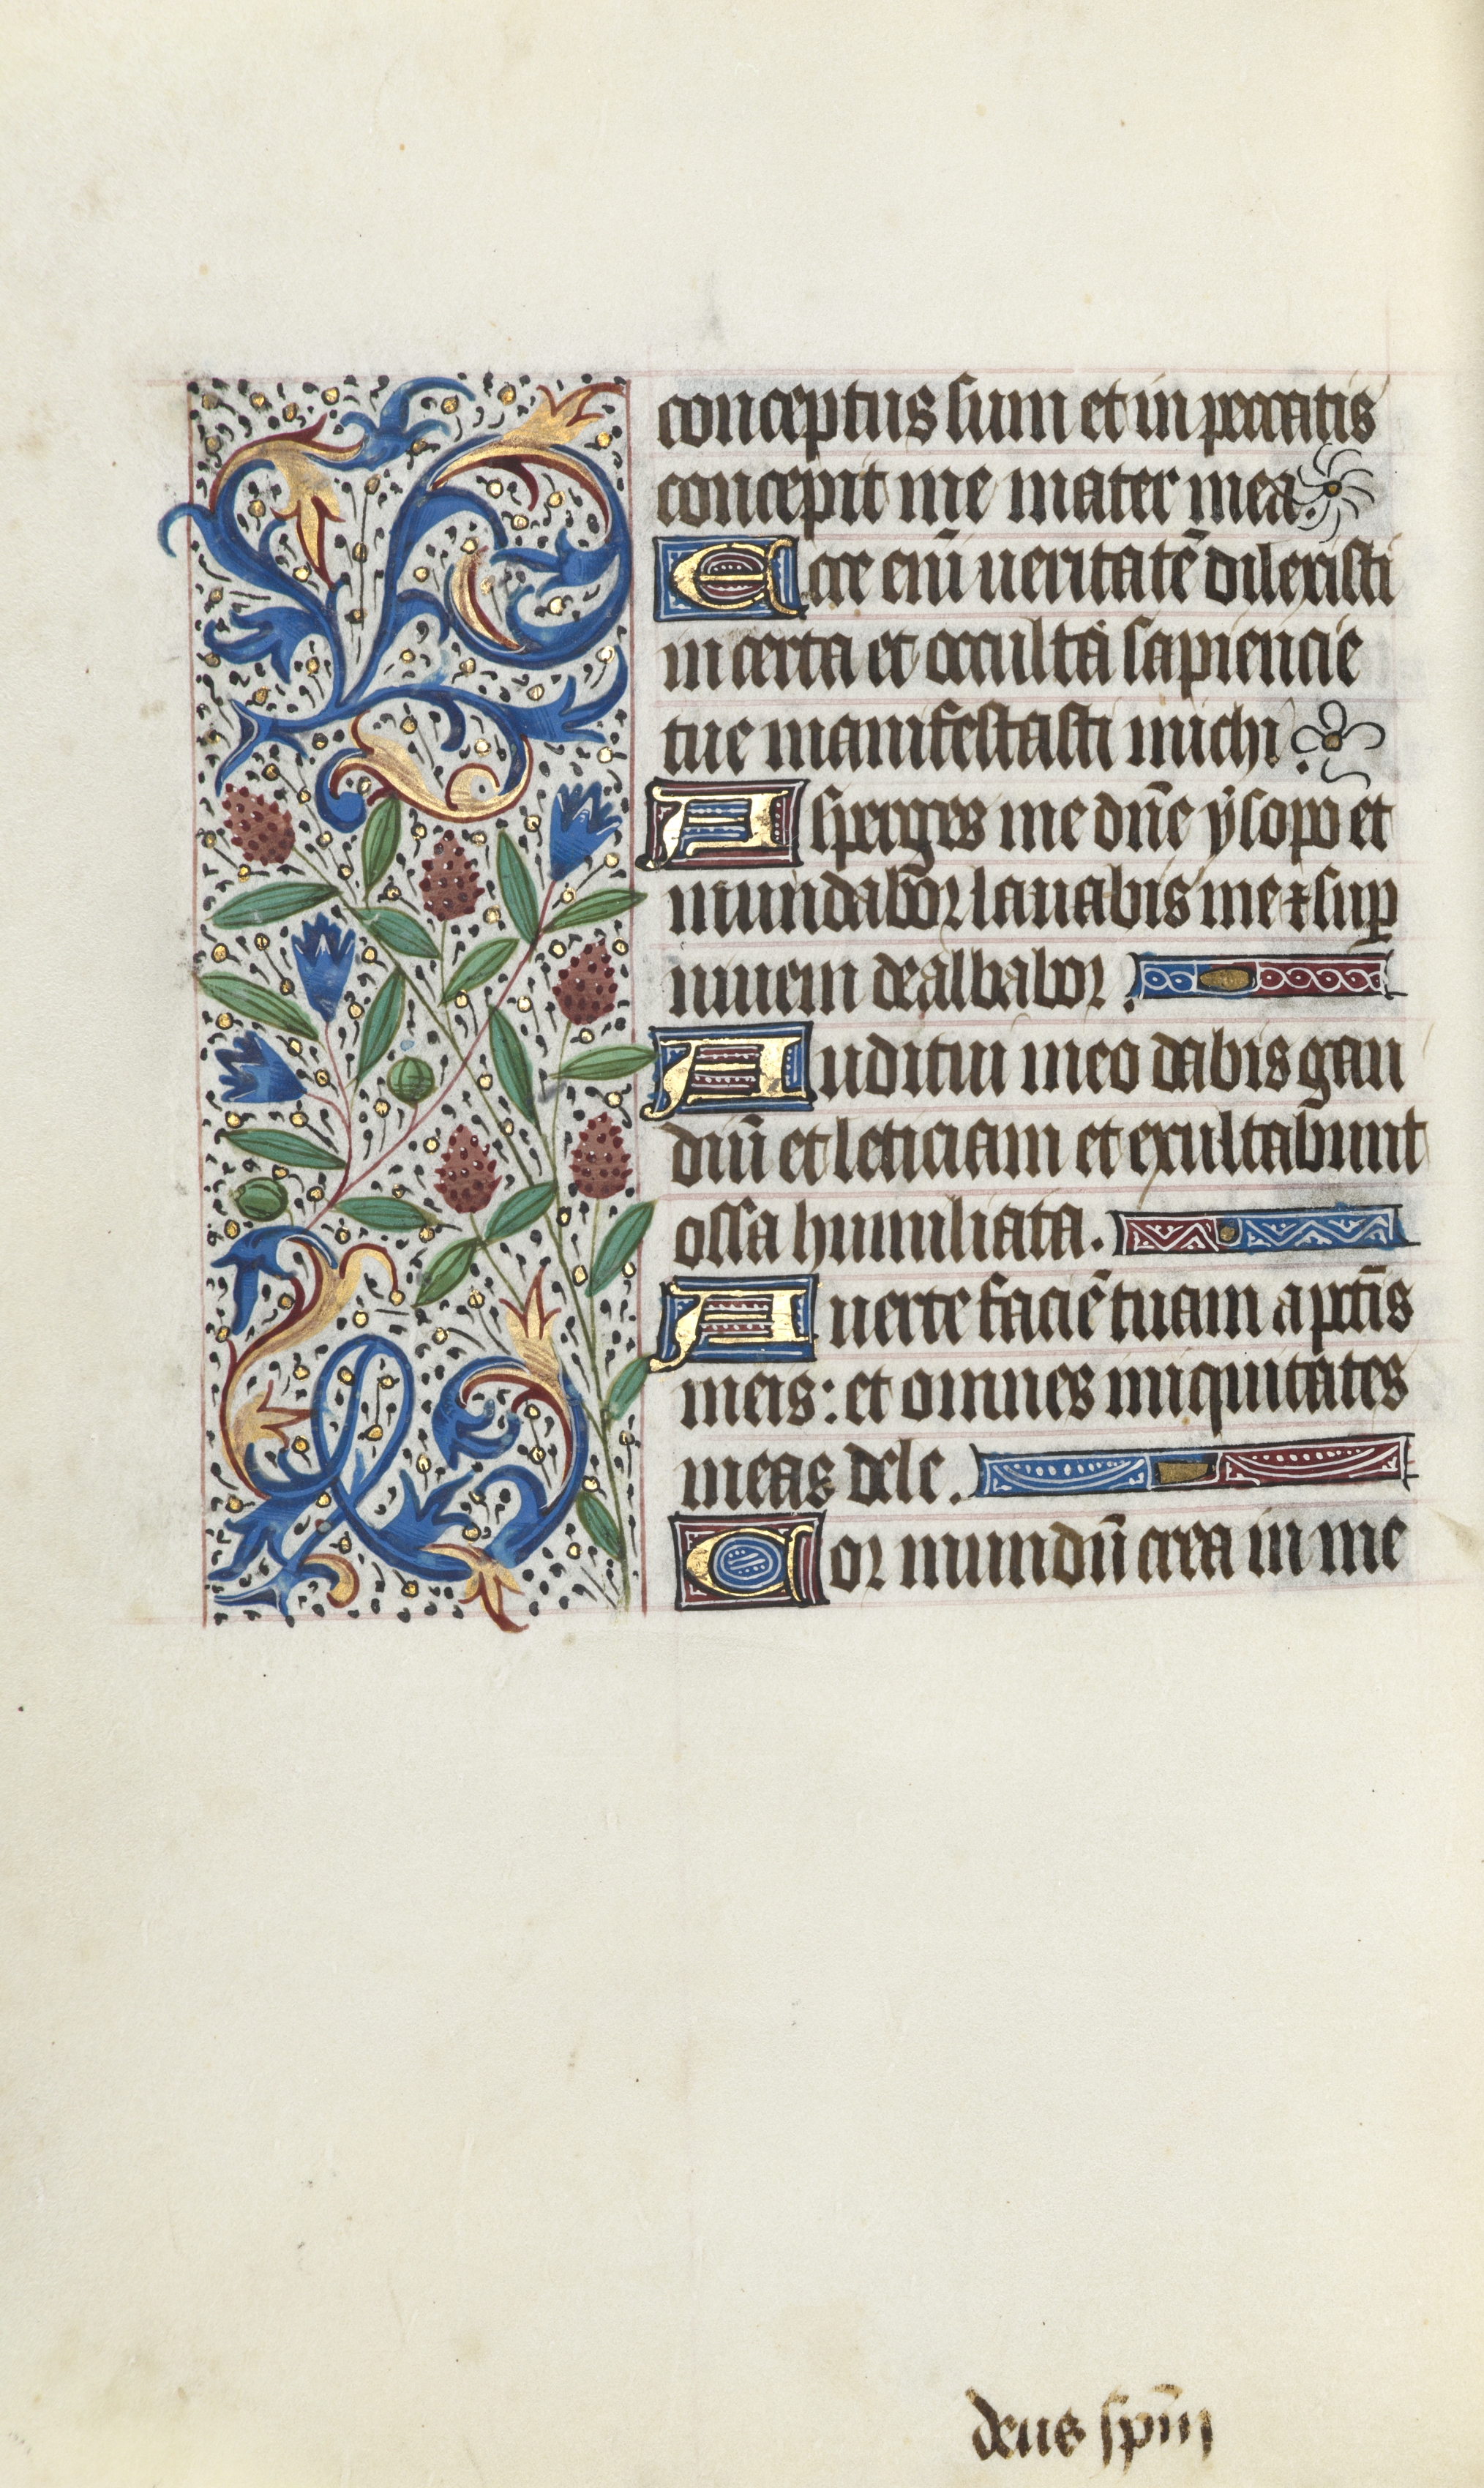 conceptus sum et in peccatis
concepit me mater mea.
Ecce eni̅ ueritate̅ dilexisti
incerta et occulta sapiencie
tue manifestasti michi.
Asperges me dn̅e ẏsopo et
mundabor lauabis me ⁊ sup̲
niuem dealbabor.
Auditui meo dabis gau
diu̅ et leticiam et exultabunt
ossa humiliata.
Auerte facie̅ tuam a pctı̅s
meis: et omnes iniquitates
meas dele.
Cor mundu̅ crea in me
deus spm̅